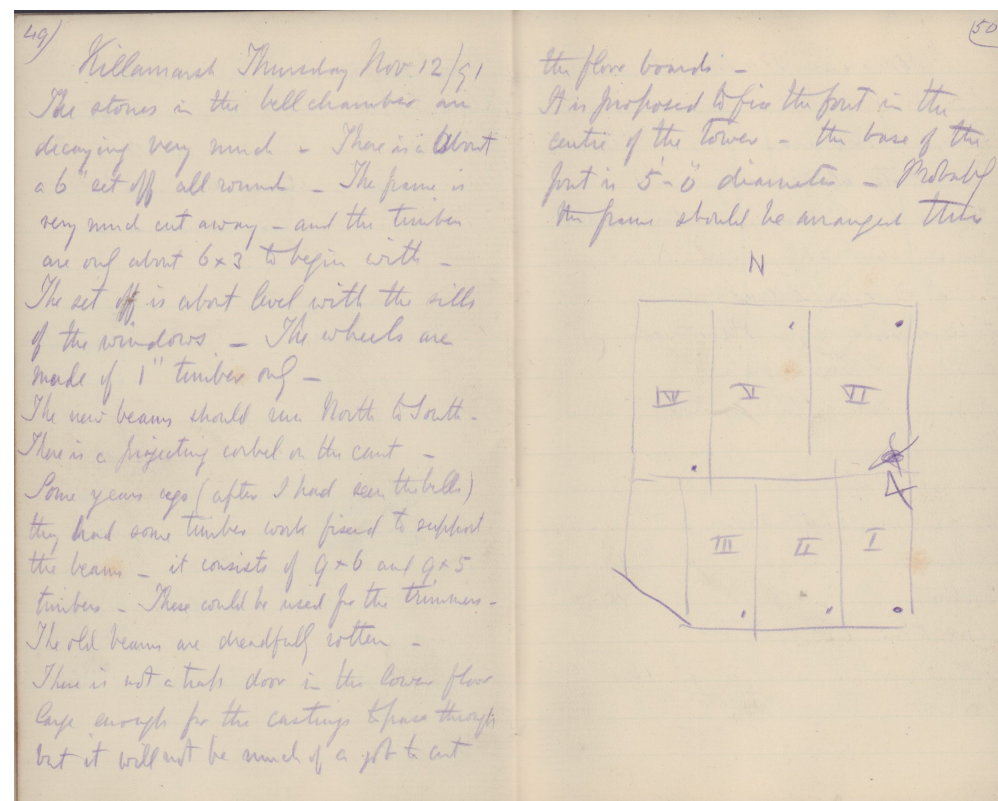 49)
Killamarsh Thursday Nov. 12/91
The stones in the bell chamber are
decaying very much – There is a about
a 6" set off all round – The frame is
very much cut away – and the timber
are only about 6 x 3 to begin with –
The set off is about level with the sills
of the windows – The wheels are
made of 1" timber only –
The new beams should run North to South –
There is a projecting corbel on the east –
Some years ago (after I had seen the bells)
they had some timber work fixed to support
the beams – it consists of 9 x 6 and 9 x 5
timbers – These could be used for the trimmers –
The old beams are dreadfully rotten –
There is not a trap door in the lower floor
large enough for the castings to pass through
but it will not be much of a job to cut
50
the floor boards –
It is proposed to fix the font in the
centre of the tower – the base of the
font is 5'-0" diameter – Probably
the frame should be arranged thus
N
IV V VI
4
III II I